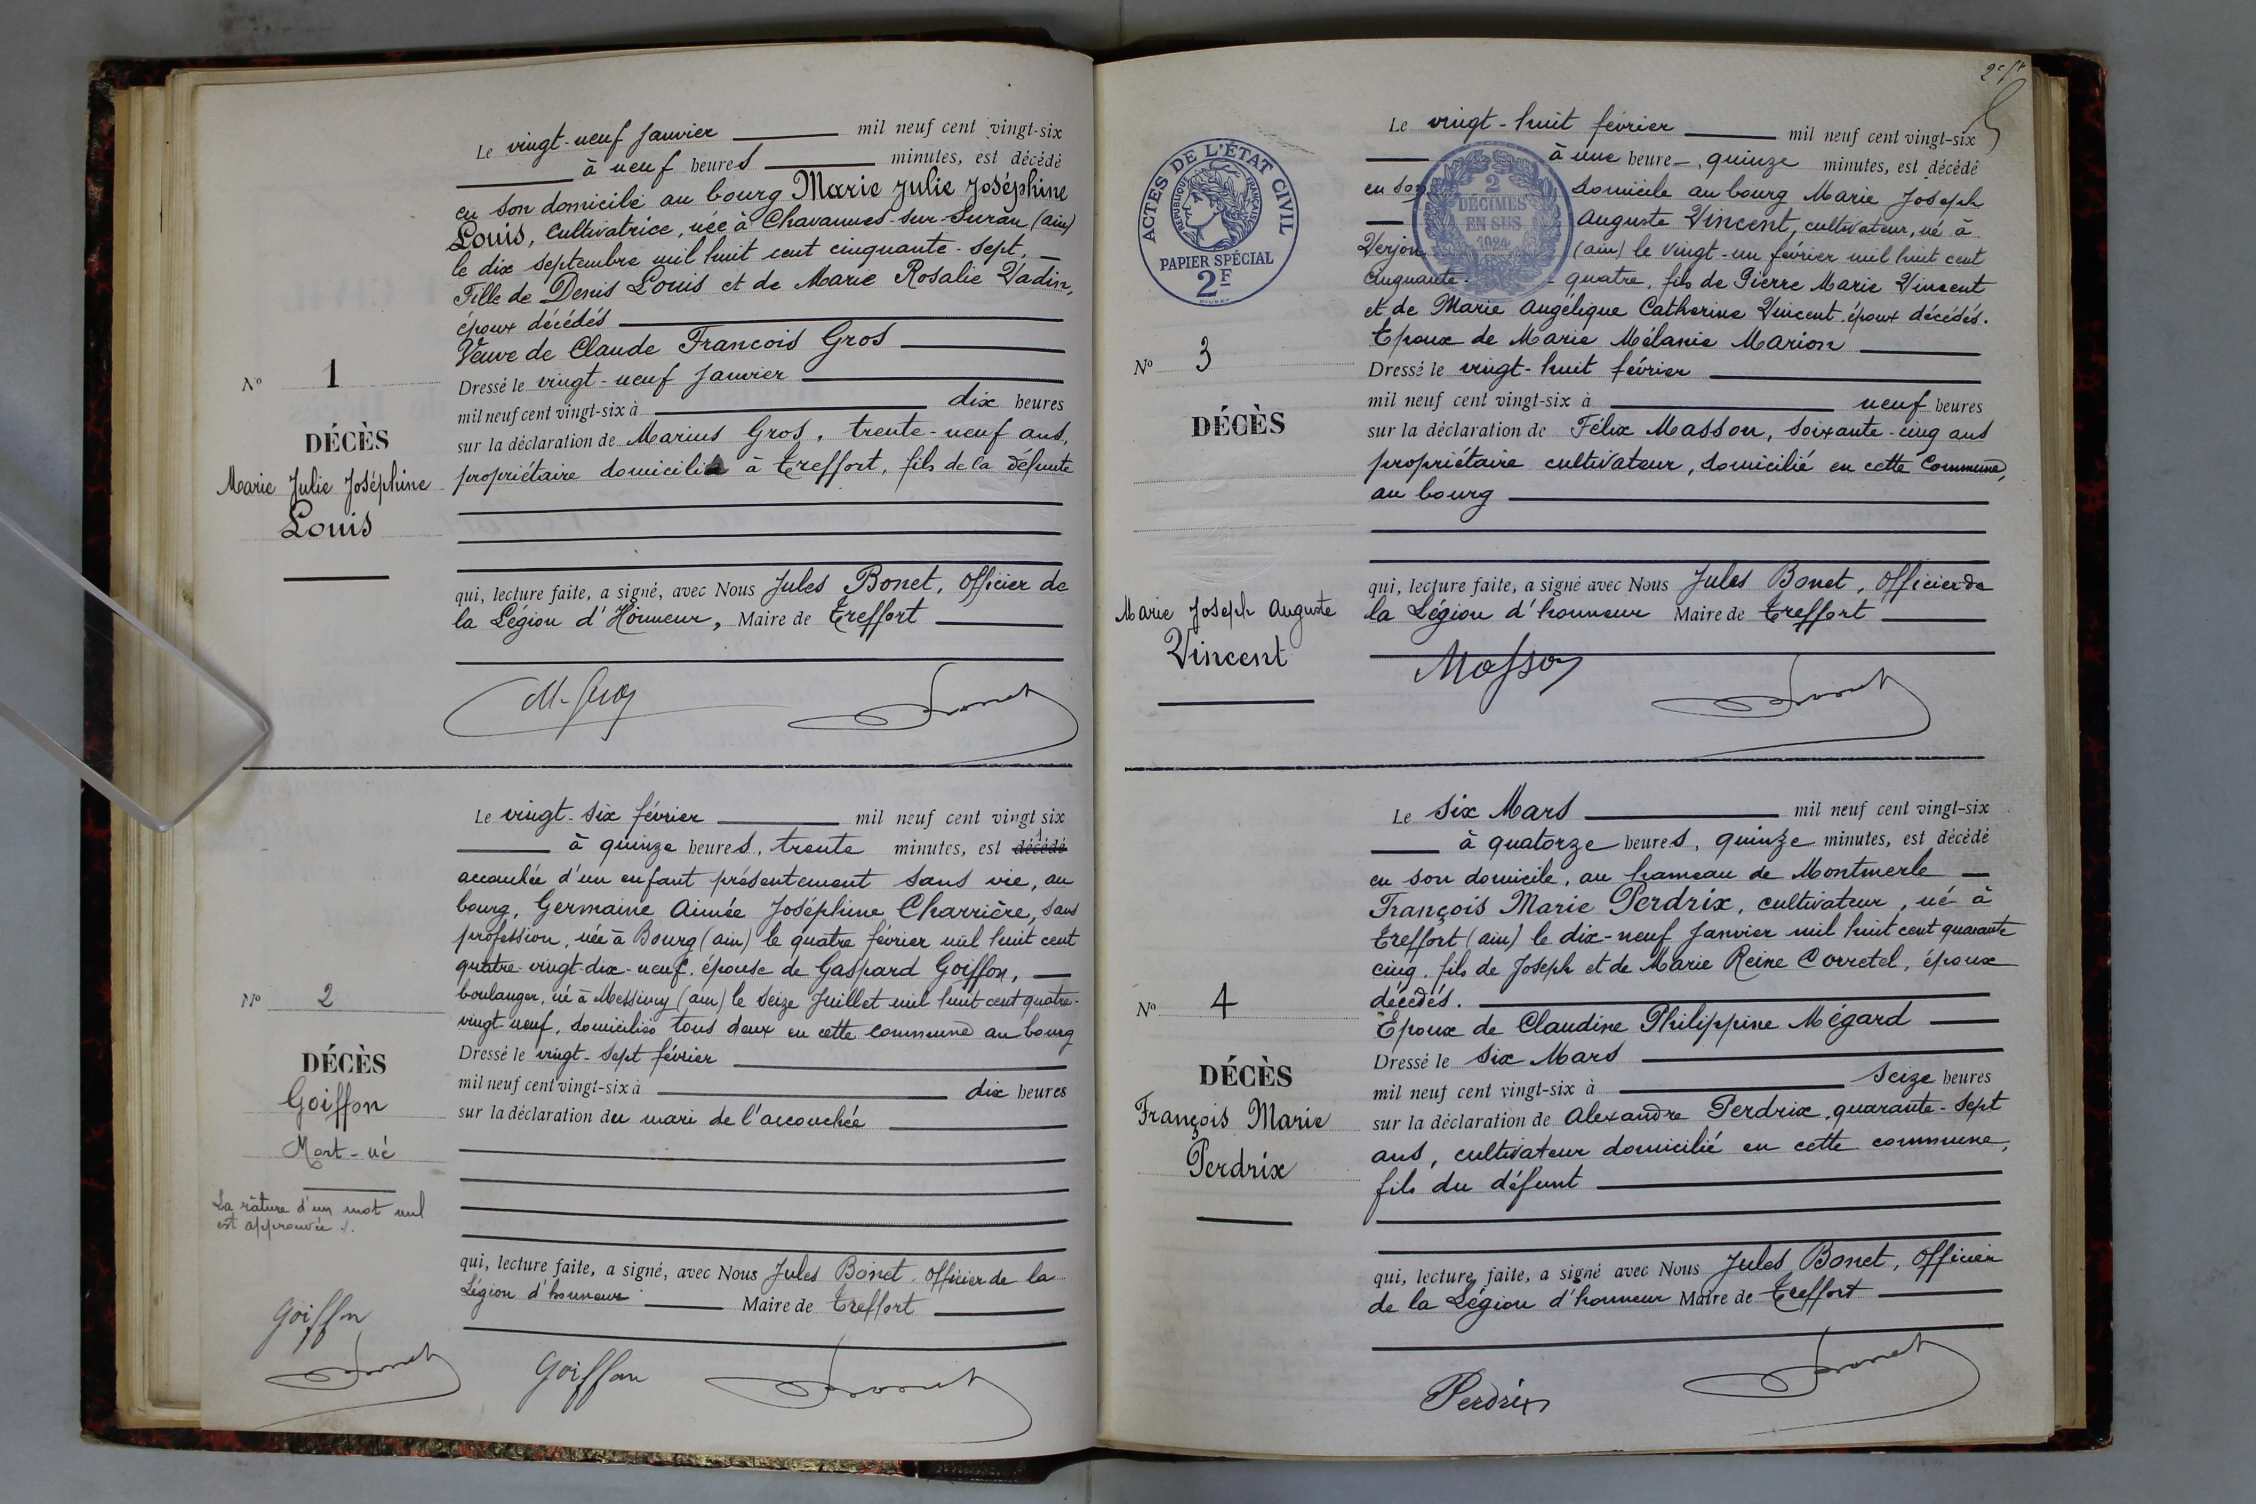 Le vingt-neuf Janvier mil neuf cent vingt-six
à neuf heures minutes, est décédé
en son domicile au bourg Marie Julie Joséphine
Louis, cultivatrice, née à Chavannes-sur-Suran (ain)
le dix septembre mil huit cent cinquante-sept,
Fille de Denis Louis et de Marie Rosalie Vadin,
époux décédés
Veuve de Claude Francois Gros
Nº 1
Dressé le vingt-neuf Janvier
mil neuf cent vingt-six à dix heures
DÉCÈS
sur la déclaration de Marius Gros, trente-neuf ans,
Marie Julie Joséphine
propriétaire domicilié à Treffort, fils de la défunte
Louis
qui, lecture faite, a signé, avec Nous Jules Bonet, Officier de
la Légion d'Honneur, Maire de Treffort
M. Gros
Bonet
Le vingt-six février mil neuf cent vingt six
à quinze heures, trente minutes, est décédé
accouchée d'un enfant présentement sans vie, au
bourg, Germaine Aimée Joséphine Charrière, sans
profession, née à Bourg (ain) le quatre février mil huit cent
quatre-vingt-dix-neuf. épouse de Gaspard Goiffon,
boulanger, né à Messimy (ain) le seize Juillet mil huit cent quatre-
vingt-neuf, domiciliés tous deux en cette commune au bourg
Nº 2
Dressé le vingt-sept février
DÉCÈS
mil neuf cent vingt-six à dix heures
Goiffon
sur la déclaration du mari de l'accouchée
Mort-né
La râture d'un mot nul
est approuvée .
qui, lecture faite, a signé, avec Nous Jules Bonet Officier de la
Légion d'honneur Maire de Treffort
Goiffon
Bonet
Goiffon
Bonet
ACTES DE L'ÉTAT CIVIL
RÉPUBLIQUE FRANÇAISE
PAPIER SPÉCIAL
2F
2 DÉCIMES
EN SUS
1924
Le vingt-huit février mil neuf cent vingt-six
à une heure, quinze minutes, est décédé
en son domicile au bourg Marie Joseph
Auguste Vincent, cultivateur, né à
Verjon (ain) le vingt-un février mil huit cent
cinquante-quatre, fils de Pierre Marie Vincent
et de Marie Angélique Catherine Vincent époux décédés.
Epoux de Marie Mélanie Marion
Nº 3
Dressé le vingt-huit février
mil neuf cent vingt-six à neuf heures
DÉCÈS
sur la déclaration de Félix Masson, soixante-cinq ans
propriétaire cultivateur, domicilié en cette Commune,
au bourg
qui, lecture faite, a signé avec Nous Jules Bonet, Officier de
Marie Joseph Auguste
la Légion d'honneur Maire de Treffort
Vincent
Masson
Bonet
Le six Mars mil neuf cent vingt-six
à quatorze heures, quinze minutes, est décédé
en son domicile, au hameau de Montmerle
François Marie Perdrix, cultivateur, né à
Treffort (ain) le dix-neuf Janvier mil huit cent quarante
cinq. fils de Joseph et de Marie Reine Corretel, époux
décédés.
Nº 4
Epoux de Claudine Philippine Mégard
Dressé le six Mars
DÉCÈS
mil neuf cent vingt-six à seize heures
François Marie
sur la déclaration de Alexandre Perdrix, quarante-sept
Perdrix
ans, cultivateur domicilié en cette commune,
fils du défunt
qui, lecture faite, a signé avec Nous Jules Bonet, Officier
de la Légion d'honneur Maire de Treffort
Perdrix
Bonet